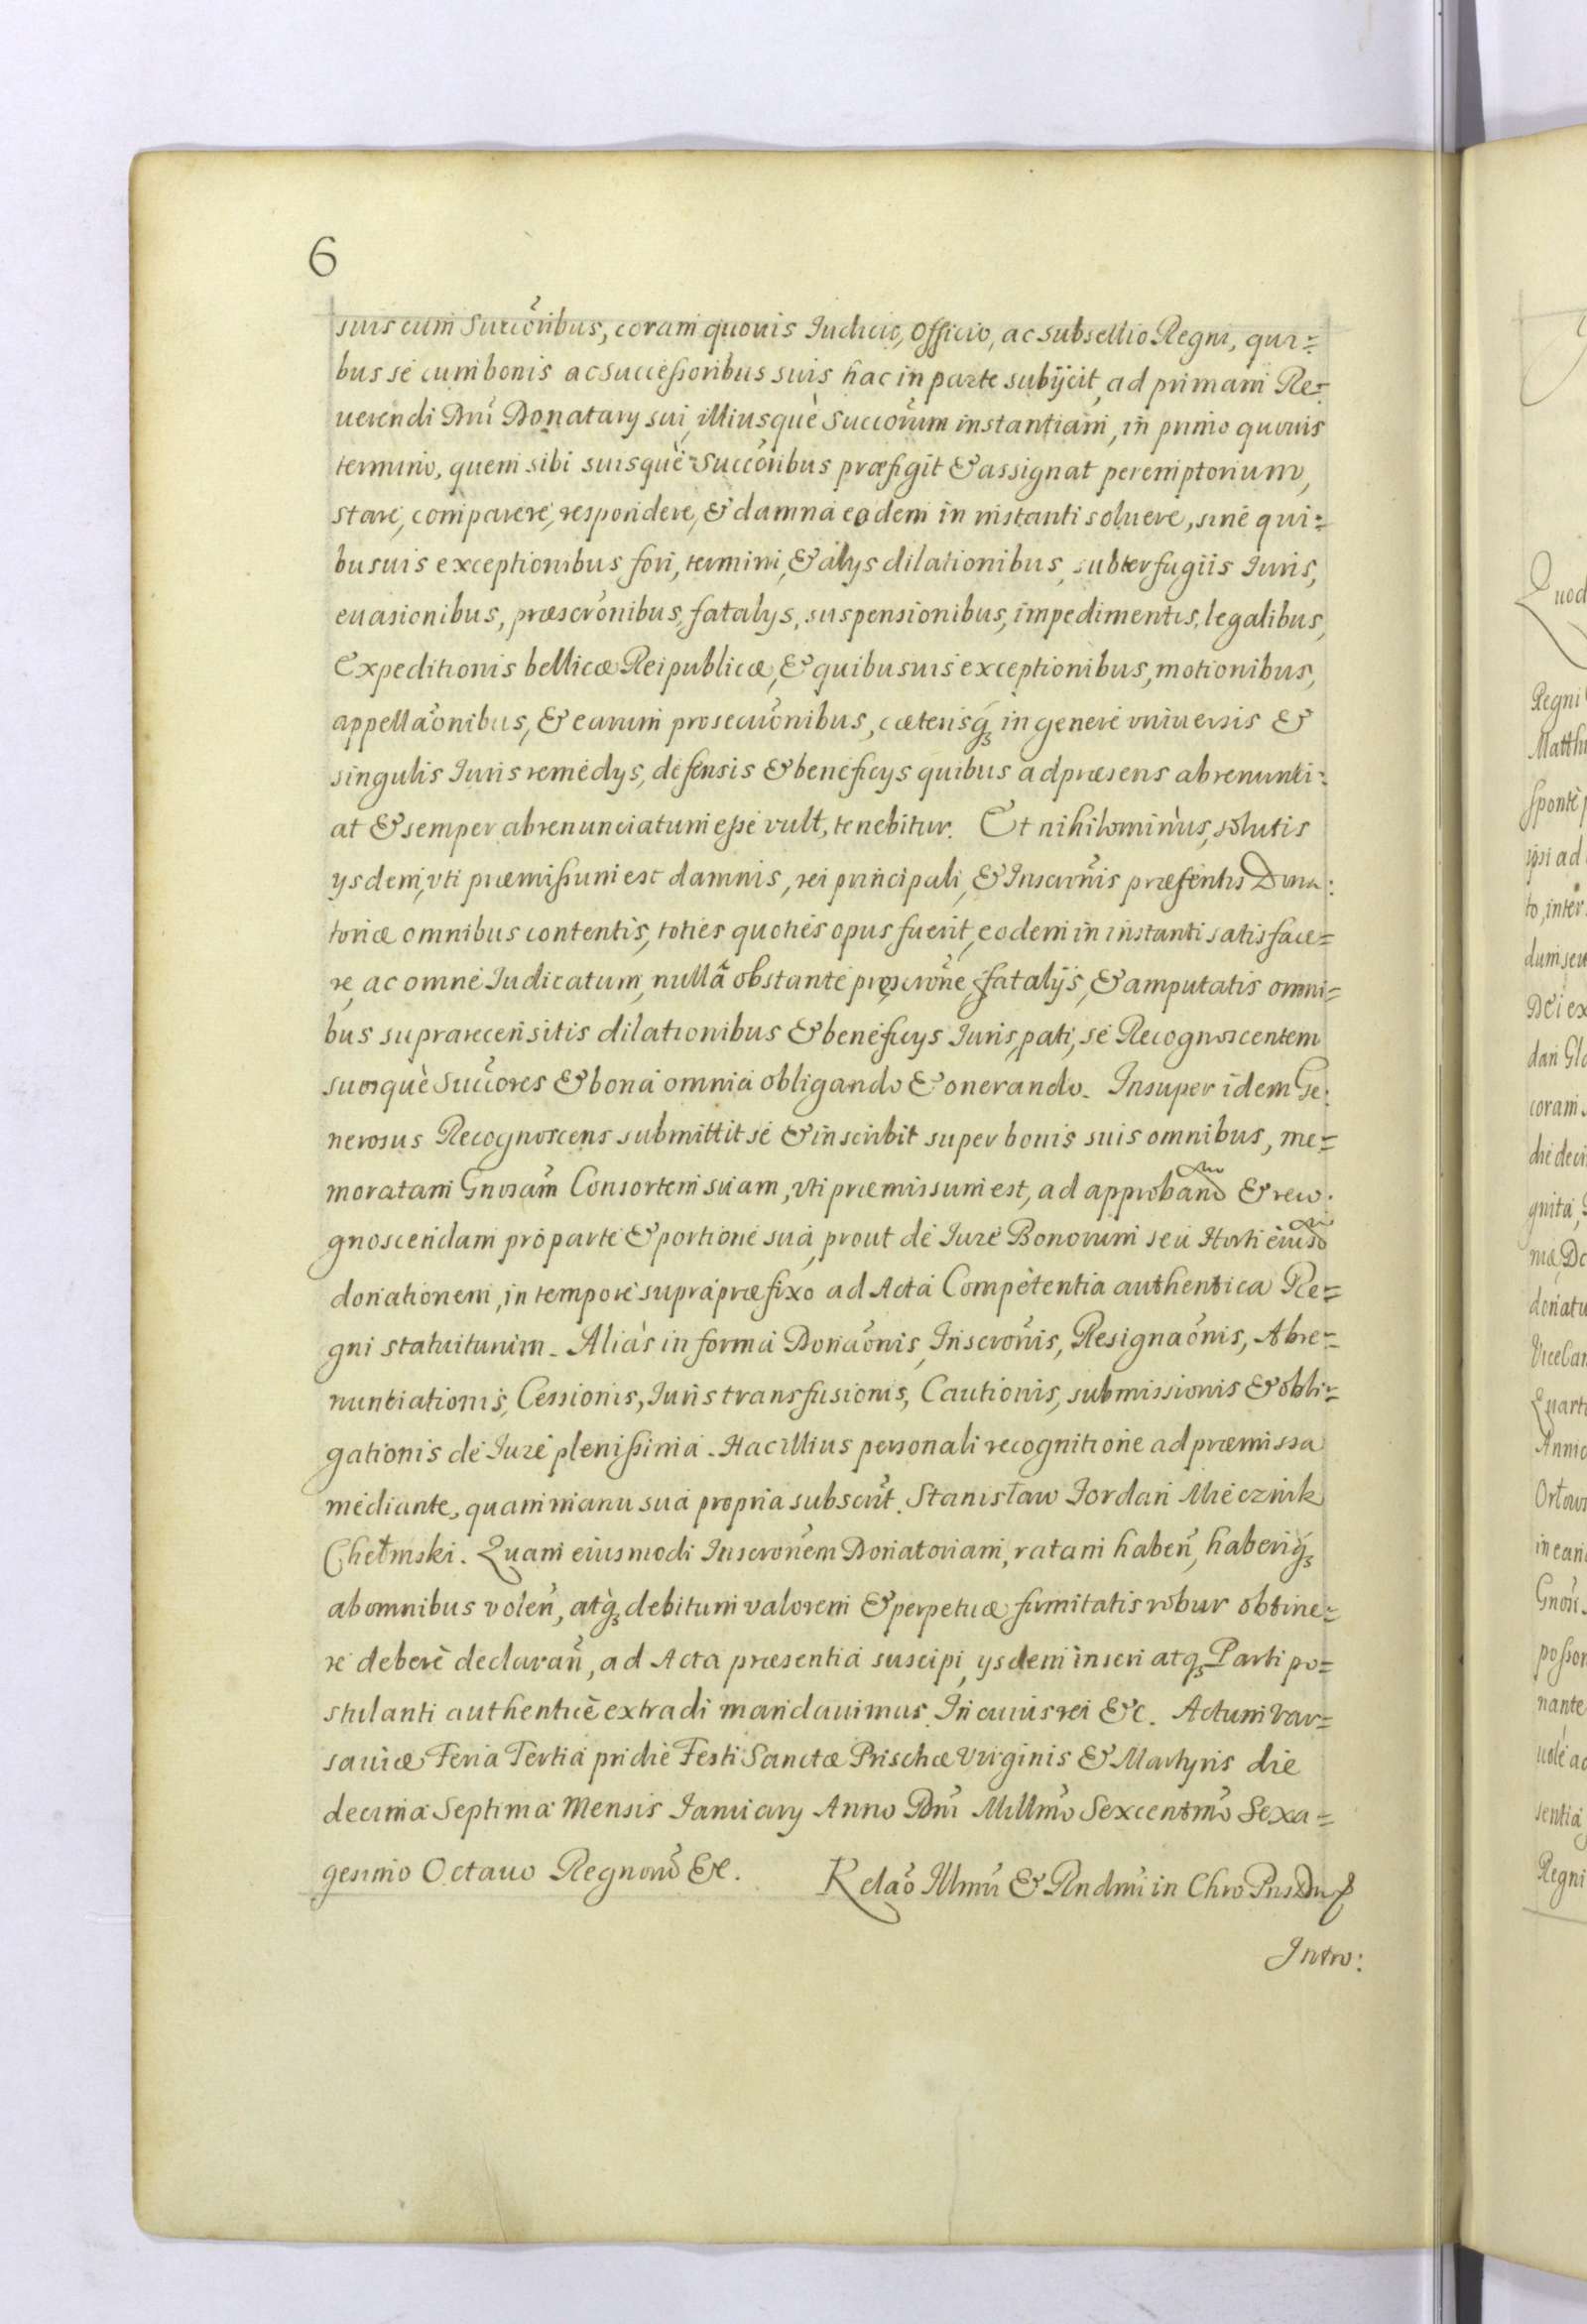 6
suis cum Succõribus, coram quouis Iudicio, Officio, ac subsellio Regni, qui=
bus se cum bonis ac successoribus suis hac in parte subijcit, ad primam Re=
uerendi Dni Donatarij sui, illiusquè Succorum instantiam, in primo quouis
termino, quem sibi suisquè Succoribus præfigit & assignat peremptorium,
stare, comparere, respondere, & damna eodem in instanti soluere, sine qui=
busuis exceptionibus fori, termini, & alijs dilationibus, subterfugiis Iuris,
euasionibus, præscronibus, fatalijs, suspensionibus, impedimentis, legalibus,
Expeditionis bellicæ Reipublicæ, & quibusuis exceptionibus, motionibus,
appellaõnibus, & earum prosecuõnibus, cæterisq3 in genere vniuersis &
singulis Iuris remedijs, defensis & beneficijs quibus ad præsens abrenunti=
at & semper abrenunciatum esse vult, tenebitur. Et nihilominùs, solutis
ijsdem, vti præmissum est damnis, rei principali, & Inscronis præsentis Dona:
toriæ omnibus contentis, toties quoties opus fuerit, eodem in instanti satisface=
re, ac omne Iudicatum, nullâ obstante præscrone, fatalijs, & amputatis omni=
bus suprarecensitis dilationibus & beneficijs Iuris, pati, se Recognoscentem
suosquè Succores & bona omnia obligando & onerando. Insuper idem Ge:
nerosus Recognoscens submittit se & inscribit super bonis suis omnibus, me=
moratam Gnosam Consortem suam, vti præmissum est, ad approband & reco:
gnoscendam pro parte & portione sua, prout de Iure Bonorum seu Horti eiusd
donationem, in tempore supra præfixo ad Acta Competentia authentica Re=
gni statuiturum. Aliàs in forma Donaõnis, Inscronis, Resignaõnis, Abre=
nuntiationis, Cessionis, Iuris transfusionis, Cautionis, submissionis & obli=
gationis de Iure plenissima. Hac illius personali recognitione ad præmissa
mediante, quam manu sua propria subscrit. Stanisław Iordan Miecznik
Chełmski. Quam eiusmodi Inscronem Donatoriam, ratam haben, haberiq3
ab omnibus volen, atq3 debitum valorem & perpetuæ firmitatis robur obtine=
re deberè declaran, ad Acta præsentia suscipi, ijsdem inseri atq3 Parti po=
stulanti authenticè extradi mandauimus. In cuius rei &c. Actum Var=
sauiæ Feria Tertia pridie Festi Sanctæ Priscæ Virginis & Martyris die
decima Septima Mensis Ianuarij Anno Dni Millmo Sexcentmo Sexa=
gesimo Octauo Regnorũ &c. Relaõ Illmi & Rndmi in Chro Pris Dni
Intro:
Quod
Regni
Matth
sponte
ipsi ad
to, inter
dum seu
Dei ex
dan Gl
coram
die deci
gnita,
mæ, Do
donatu
Vice Can
Quart
Anno
Orłow
in eam
Gnosi
posson
nante
uole ac
sentia
Regni